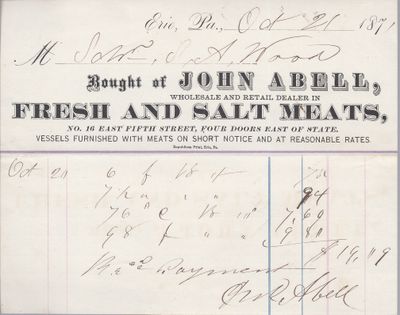 Erie, Pa., Oct 21 1871
M Schr. S. A. Wood
Bought of JOHN ABELL,
WHOLESALE AND RETAIL DEALER IN
FRESH AND SALT MEATS,
NO. 16 EAST FIFTH STREET, FOUR DOORS EAST OF STATE.
VESSELS FURNISHED WITH MEATS ON SHORT NOTICE AND AT REASONABLE RATES.
Oct 20 6
94
76 " C 10 7,60
98 " " 9 80
$ 19,09
Recd Payment
Jno. Abell